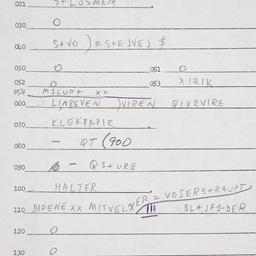 021
030 O
040 S+VO ) = S+EJVEJ $
050 O 051 O
052 O 053 XIRIK
054 MILUP+ XX
060 LINBEVEN JVIREN QIX2VIRE
070 KLEKPAPIR
080 - QT (900
090 - QS+URE
100 HALTER
110 DIPENE XX MITVELXER = VOSERS+RAJPT
III BLAJFJ-DER
120 O
130 O